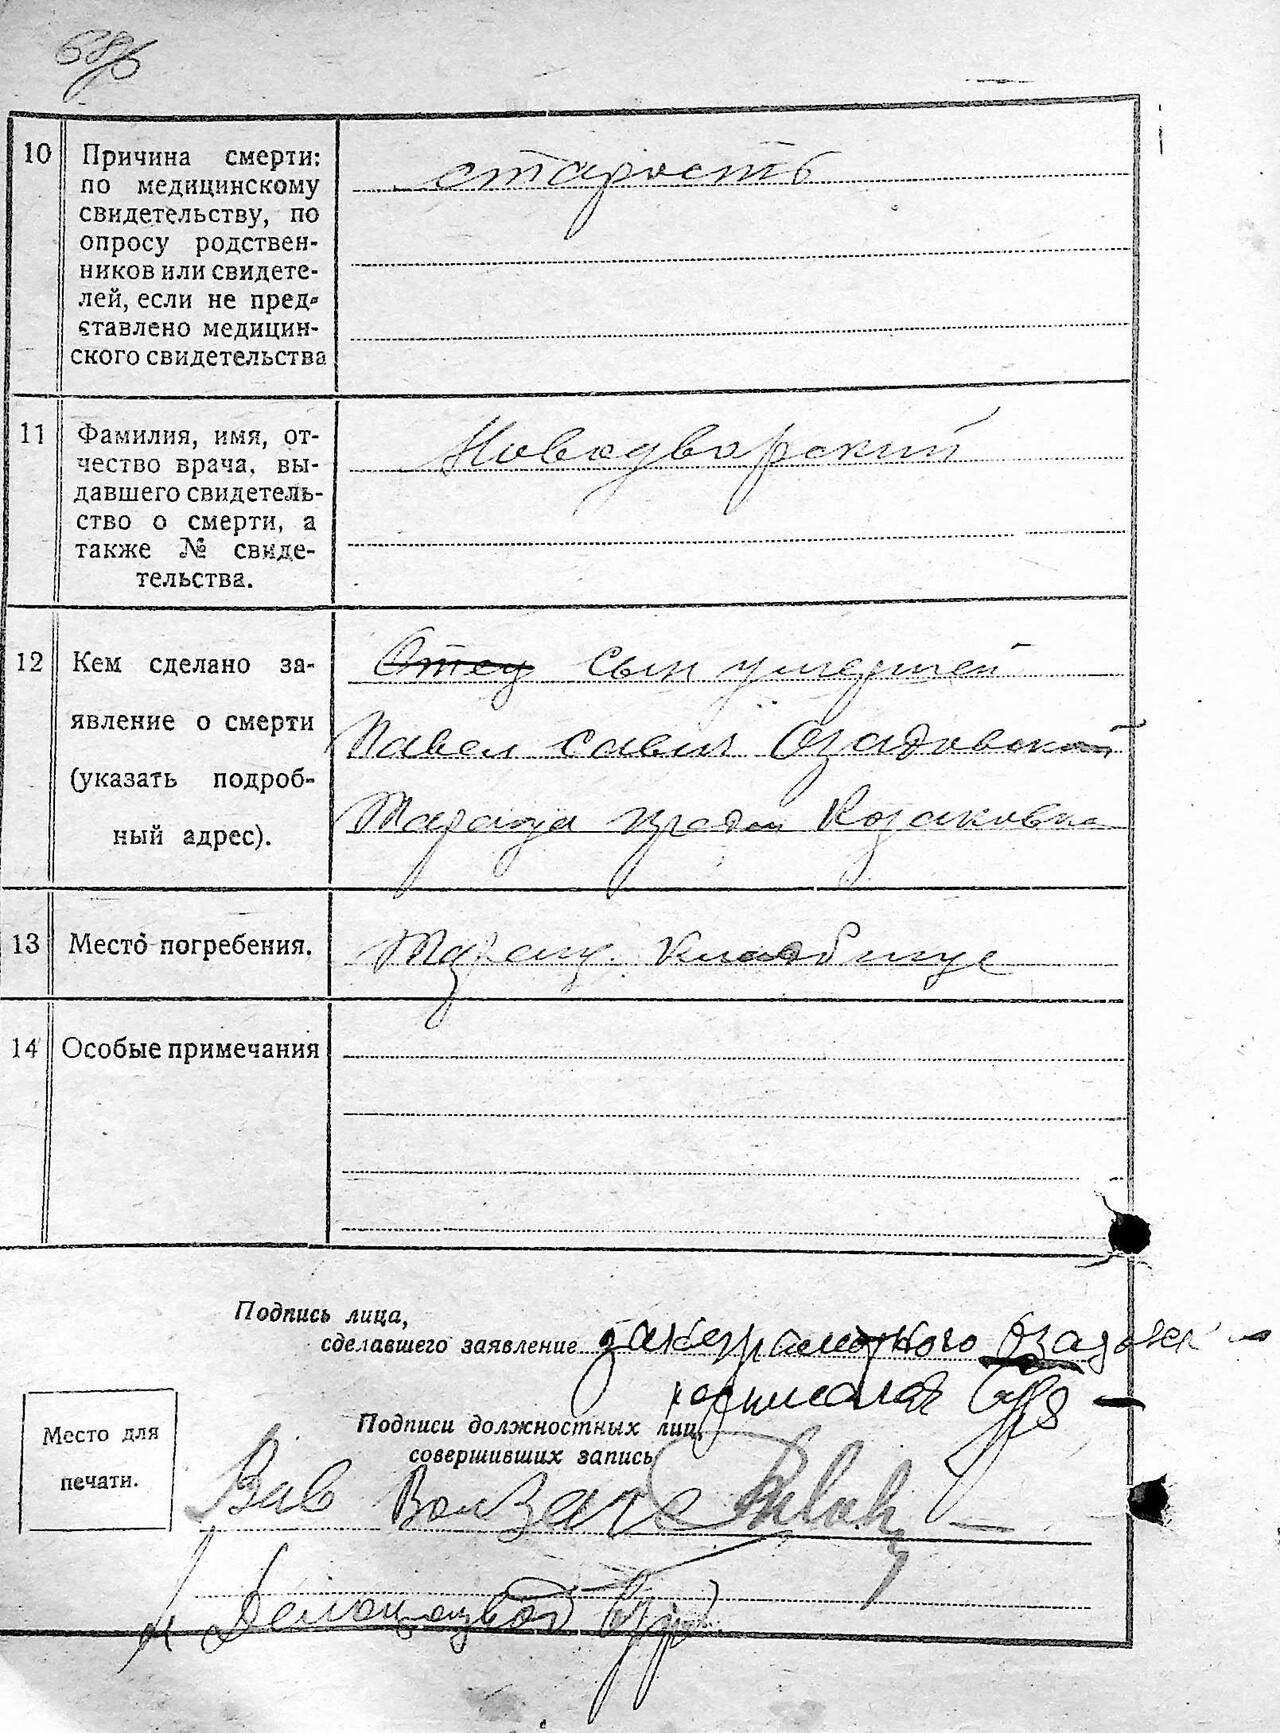 10
Причина смерти:
по медицинскому
свидетельству, по
опросу родствен-
ников или свидете-
лей, если не пред-
ставлено медицин-
ского свидетельства
старость
11
Фамилия, имя, от-
чество врача, вы-
давшего свидетель-
ство о смерти, а
также № свиде-
тельства.
Новодворский
12
Кем сделано за-
явление о смерти
(указать подроб-
ный адрес).
Отец сын умершей
Павел Савич Озадовский
Тараща
13
Место погребения.
Таращ. кладбище
14
Особые примечания
Подпись лица,
сделавшего заявление
Подписи должностных лиц,
совершивших запись
Место для
печати.
Зав